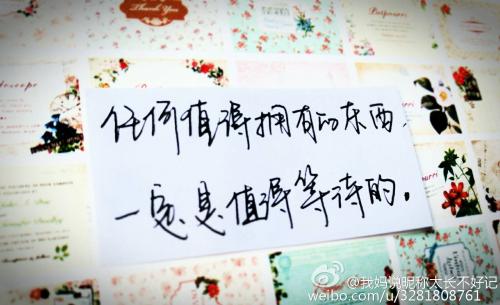 Thank You
任何值得拥有的东西，
一定是值得等待的。
@我妈说昵称太长不好记
weibo.com/u/3281808761